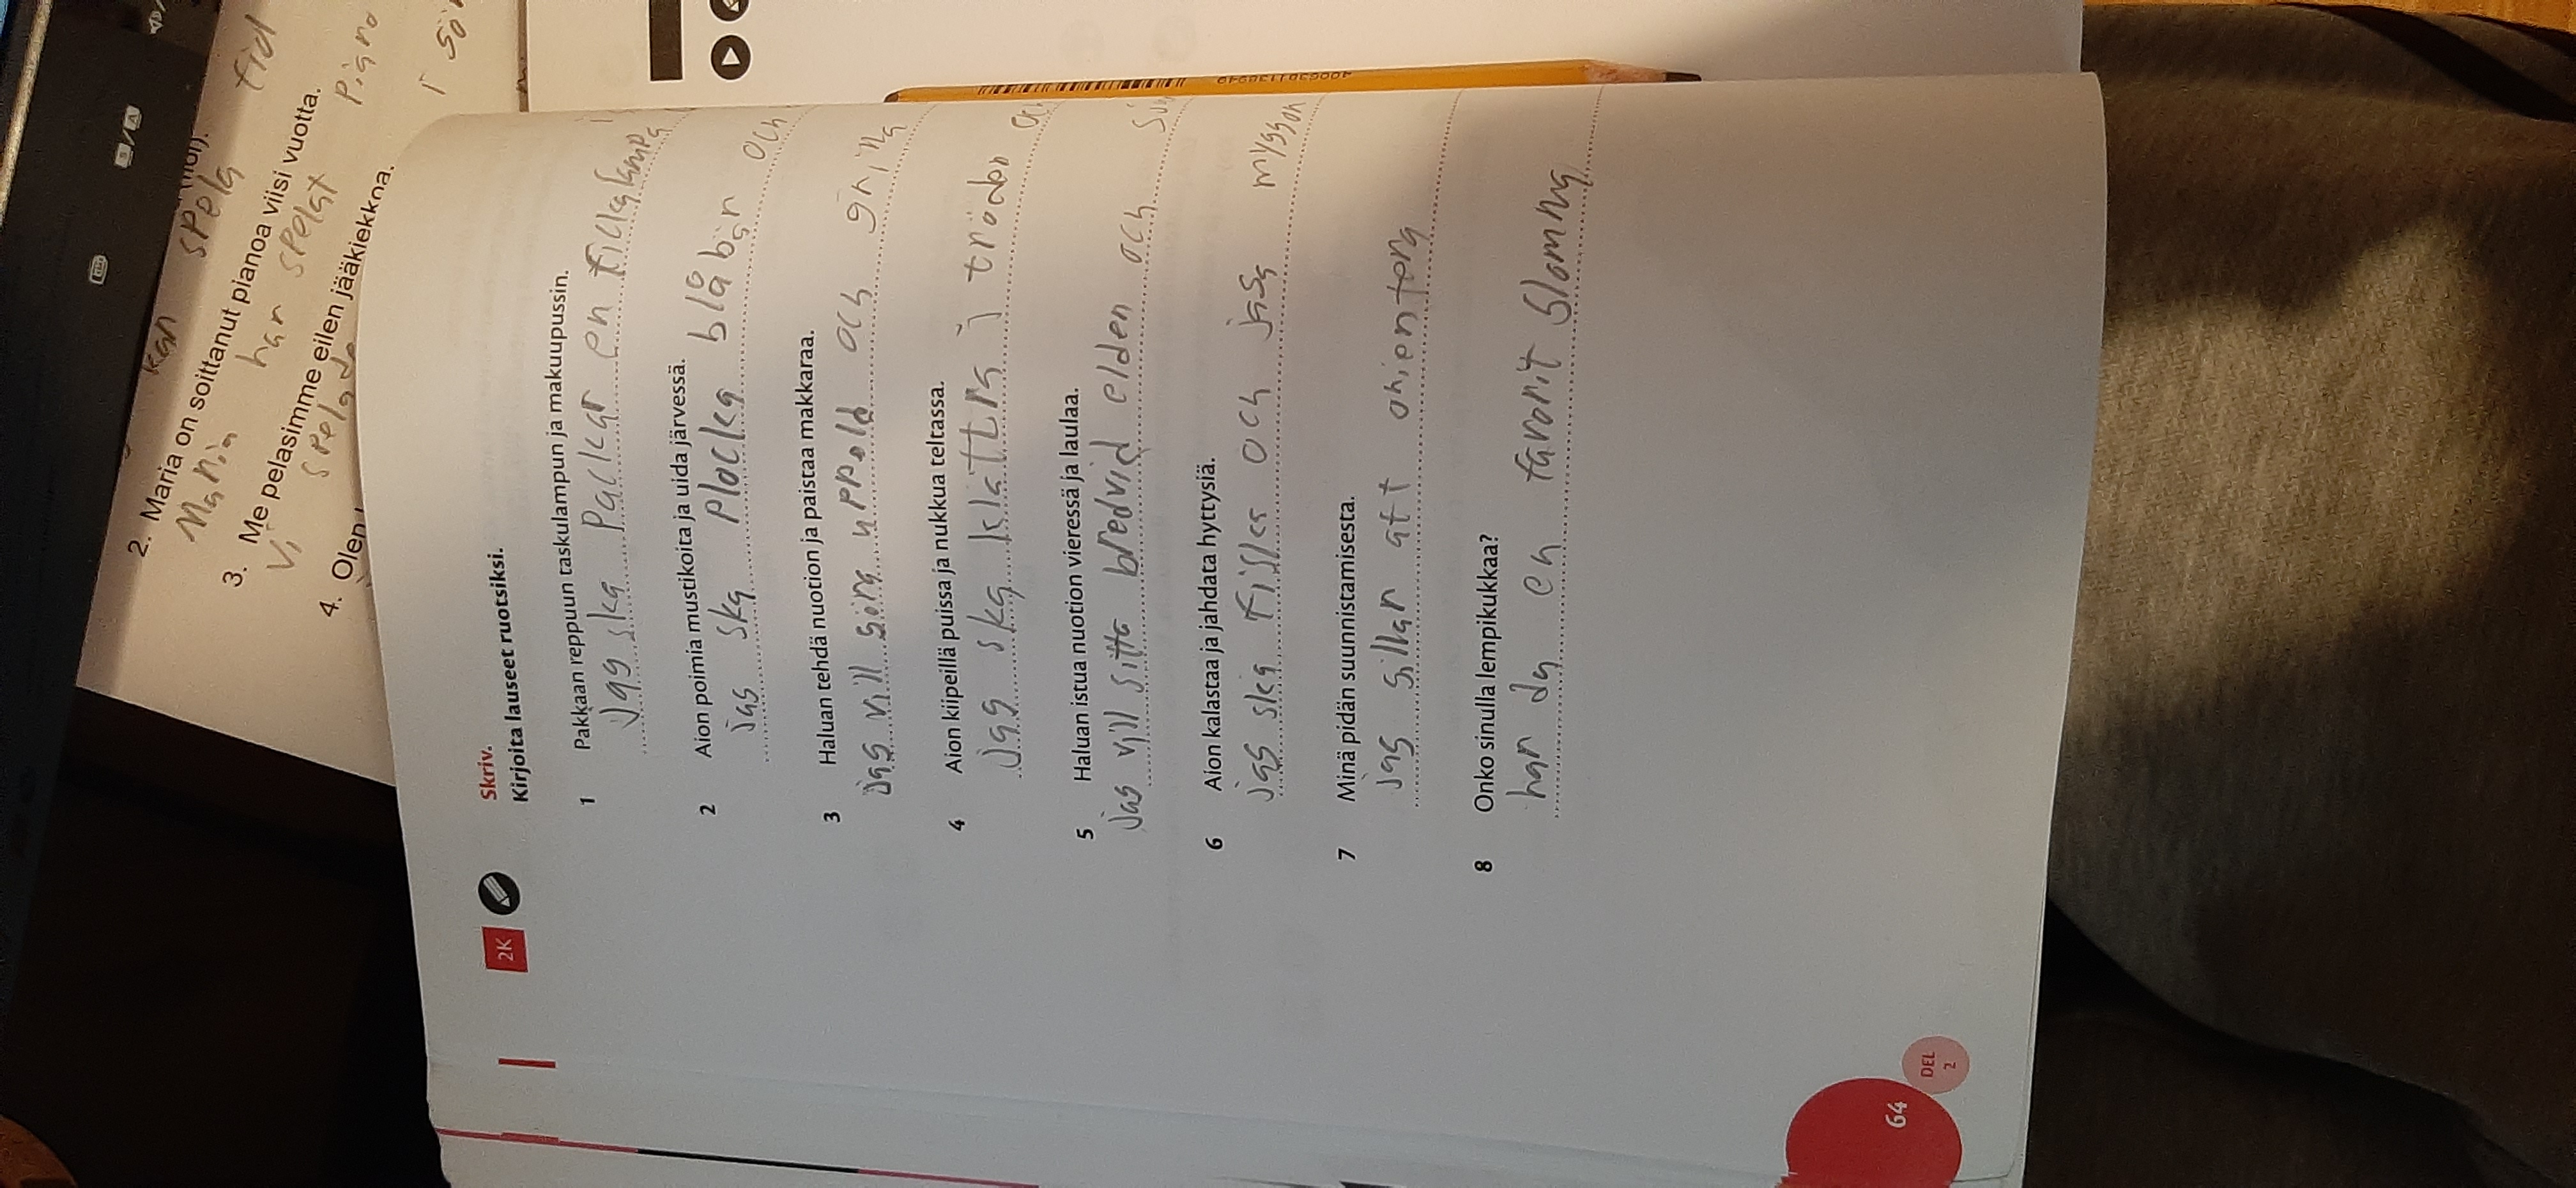 kan spela tid
2. Maria on soittanut pianoa viisi vuotta.
Maria har spelat piano
3. Me pelasimme eilen jääkiekkoa.
Vi spelade i
4. Olen
2K
Skriv.
Kirjoita lauseet ruotsiksi.
1 Pakkaan reppuun taskulampun ja makuupussin.
Jag ska packar en ficklampa
2 Aion poimia mustikoita ja uida järvessä.
jag ska plocka blåbär och
3 Haluan tehdä nuotion ja paistaa makkaraa.
jag vill göra uppeld och grilla
4 Aion kiipeillä puissa ja nukkua teltassa.
Jag ska klättra i träden och
5 Haluan istua nuotion vieressä ja laulaa.
jag vill sitta bredvid elden och
6 Aion kalastaa ja jahdata hyttysiä.
jag ska fisker och jaga myggor
7 Minä pidän suunnistamisesta.
jag gillar att orientera
8 Onko sinulla lempikukkaa?
har du en favorit blomma
64
DEL
2